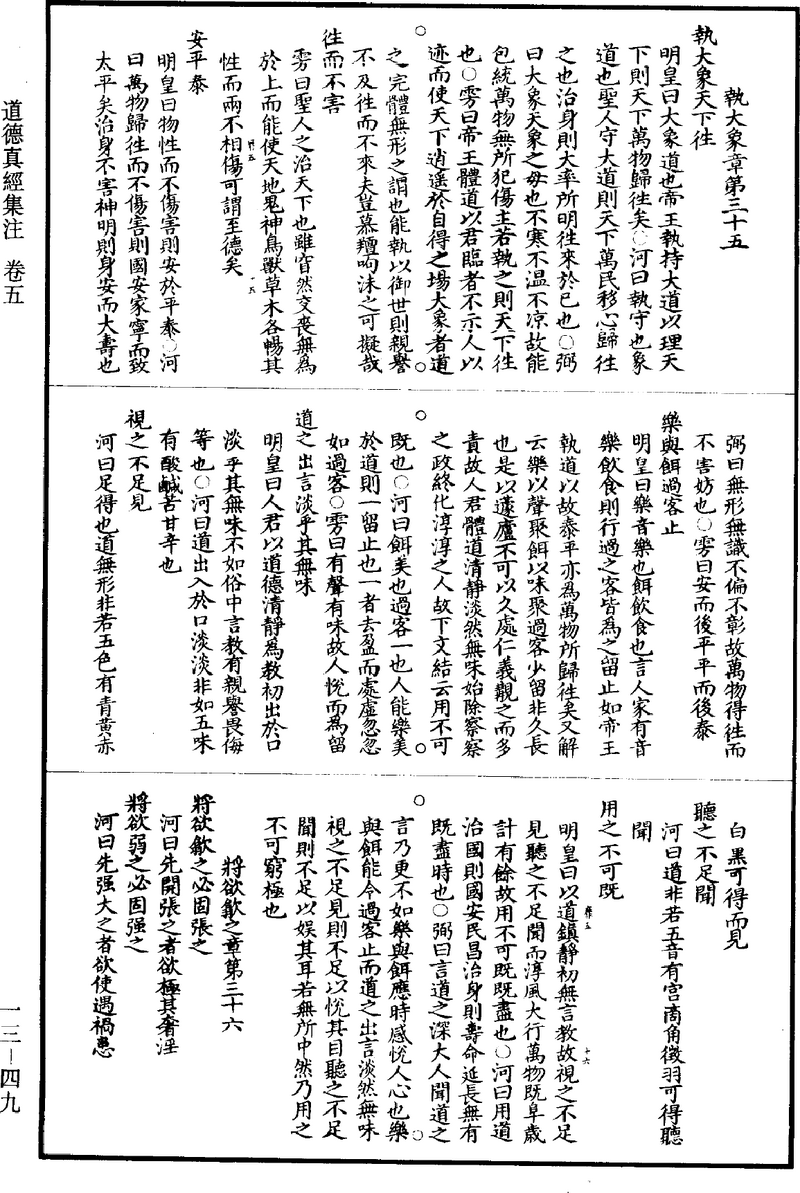 執大象章第三十五
執大象天下往
明皇曰大象道也帝王執持大道以理天
下則天下萬物歸往矣〇河曰執守也象
道也聖人守大道則天下萬民移心歸往
之也治身則大率所明往來於已也〇弼
曰大象天象之母也不寒不温不凉故能
包統萬物無所犯傷主若執之則天下往
也〇雱曰帝王體道以君臨者不示人以
迹而使天下逍遥於自得之場大象者道
之完體無形之謂也能執以御世則親譽
不及往而不來夫豈慕羶响沫之可擬哉
往而不害
雱曰聖人之治天下也雖窅然交喪無為
於上而能使天地鬼神鳥獸草木各暢其
性而兩不相傷可謂至德矣
安平泰
明皇曰物性而不傷害則安於平泰〇河
曰萬物歸往而不傷害則國安家寧而致
太平矣治身不害神明則身安而大壽也
弼曰無形無識不偏不彰故萬物得往而
不害妨也〇雱曰安而後平平而後泰
樂與餌過客止
明皇曰樂音樂也餌飲食也言人家有音
樂飲食則行過之客皆為之留止如帝王
執道以故泰平亦為萬物所歸往矣又解
云樂以聲聚餌以味聚過客少留非久長
也是以蘧廬不可以久處仁義覯之而多
責故人君體道清靜淡然無味始除察察
之政終化淳淳之人故下文結云用不可
既也〇河曰餌美也過客一也人能樂美
於道則一留止也一者去盈而處虛忽忽
如過客〇雱曰有聲有味故人悅而為留
道之出言淡乎其無味
明皇曰人君以道德清靜為教初出於口
淡乎其無味不如俗中言教有親譽畏侮
等也〇河曰道出入於口淡淡非如五味
有酸鹹苦甘辛也
視之不足見
河曰足得也道無形非若五色有青黄赤
白黑可得而見
聽之不足聞
河曰道非若五音有宫商角徵羽可得聽
聞
用之不可既
明皇曰以道鎮靜初無言教故視之不足
見聽之不足聞而淳風大行萬物既阜歲
計有餘故用不可既既盡也〇河曰用道
治國則國安民昌治身則壽命延長無有
既盡時也〇弼曰言道之深大人聞道之
言乃更不如樂與餌應時感悅人心也樂
與餌能令過客止而道之出言淡然無味
視之不足見則不足以悅其目聽之不足
聞則不足以娱其耳若無所中然乃用之
不可窮極也
將欲歙之章第三十六
將欲歙之必固張之
河曰先開張之者欲極其奢淫
將欲弱之必固强之
河曰先强大之者欲使遇禍患
道德真經集注　卷五
一三—四九